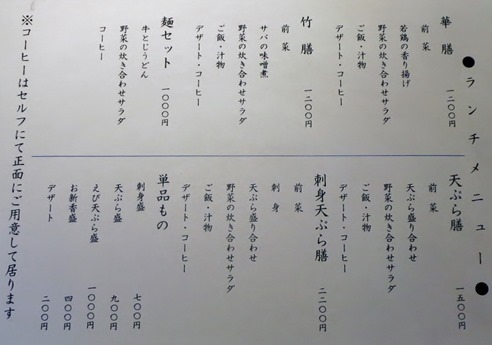 ●ランチメニュー●
華膳 一二〇〇円
前菜
若鶏の香り揚げ
野菜の炊き合わせサラダ
ご飯・汁物
デザート・コーヒー
竹膳 一二〇〇円
前菜
サバの味噌煮
野菜の炊き合わせサラダ
ご飯・汁物
デザート・コーヒー
麺セット 一〇〇〇円
牛とじうどん
野菜の炊き合わせサラダ
コーヒー
天ぷら膳 一五〇〇円
前菜
天ぷら盛り合わせ
野菜の炊き合わせサラダ
ご飯・汁物
デザート・コーヒー
刺身天ぷら膳 二二〇〇円
前菜
刺身
天ぷら盛り合わせ
野菜の炊き合わせサラダ
ご飯・汁物
デザート・コーヒー
単品もの
刺身盛 七〇〇円
天ぷら盛 九〇〇円
えび天ぷら盛 一〇〇〇円
お新香盛 四〇〇円
デザート 二〇〇円
※コーヒーはセルフにて正面にご用意して居ります